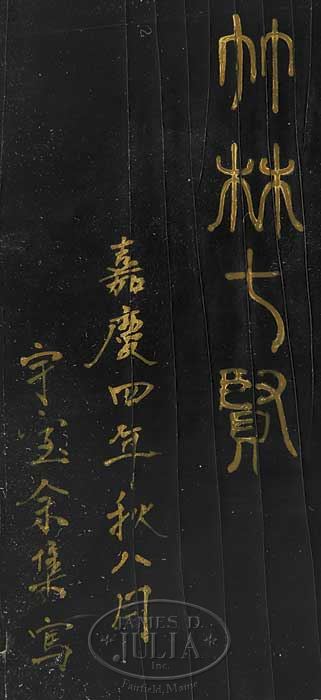 竹林七賢
嘉慶四年秋八月
宇室余集寫
JAMES D.
JULIA
Inc.
Fairfield, Maine